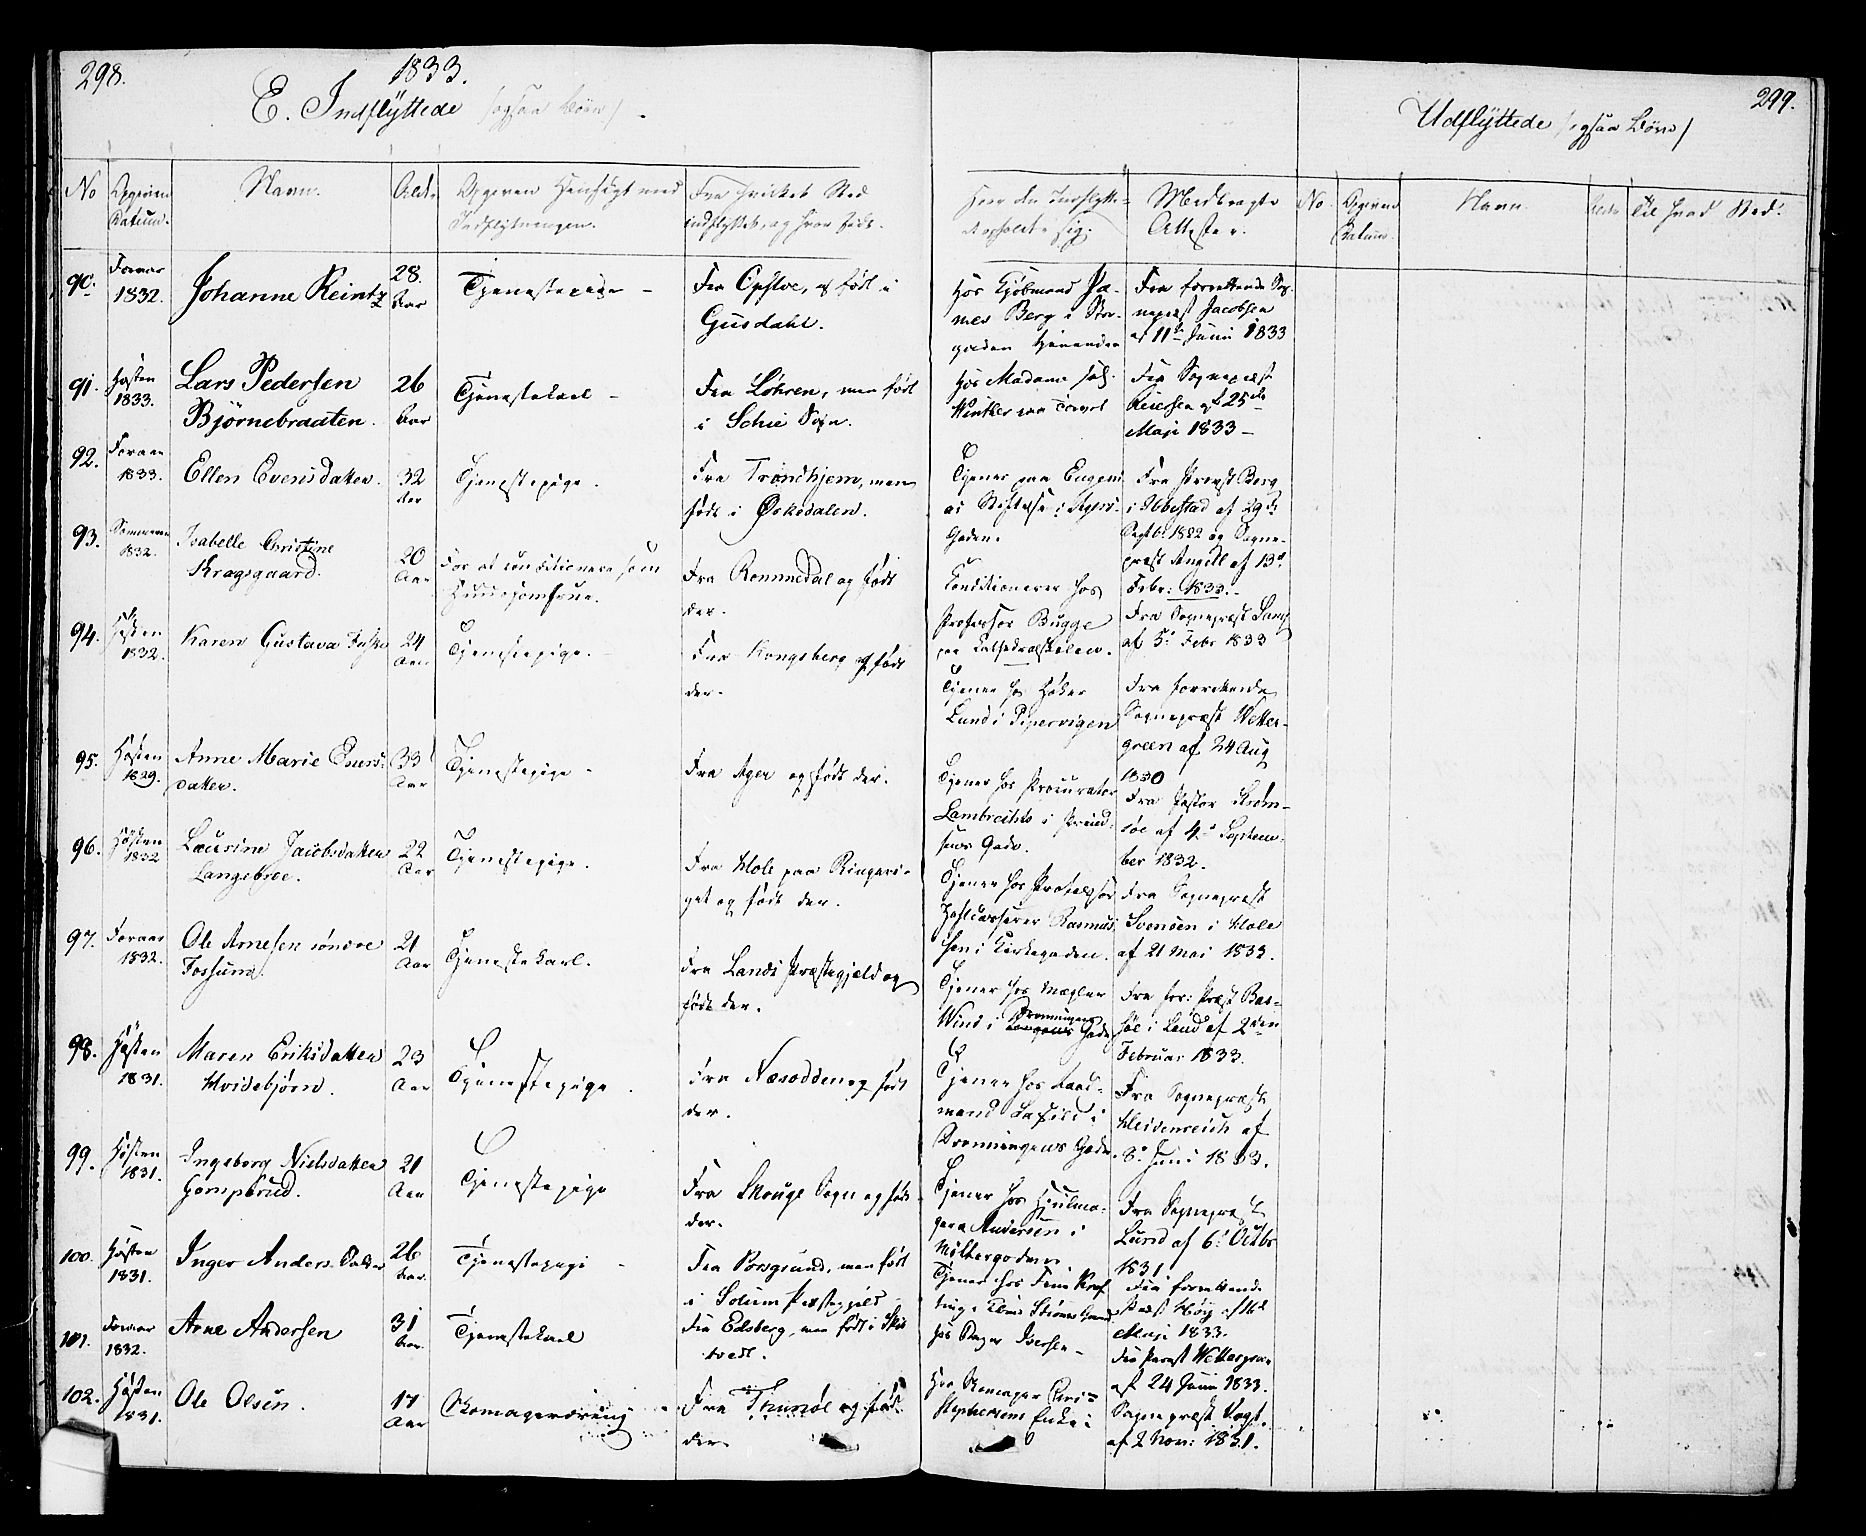 298.
1833.
E. Indflyttede /ogsaa Børn/.
No
Opgiven Datum.
Navn.
Alder
Opgiven Hensigt med Indflytningen.
Fra hvilket Sted indflyttet, og hvor født.
Medbragte Attester.
90.
Foraar 1832.
Johanne Reintz
28. Aar
Tjenestepige –
Fra Opsloe, og født i
Gusdahl.
Hos Kjøbmand Ja-
mes Berg i Stor-
gaden
Fra forrettende Sog-
nepræst Jacobsen
af 11te Juni 1833
91.
Høsten 1833.
Lars Pedersen
Bjørnebraaten.
26 Aar
Tjenestekarl –
Fra Løhren, men født
i Schie Sogn.
Hos Madame sal.
Winkler paa Torvet
Fra Sognepræst
Reiersen af 25de
Maji 1833 –
92.
Foraar 1833.
Ellen Evensdatter.
32 Aar
Tjenestepige.
Fra Trondhjem, men
født i Ørksdalen.
Tjener paa Eugeni
as Stiftelse i Agers-
Gaden.
Fra Provst Berg
i Ibbestad af 29de
Septb: 1822 og Sogne-
præst Angell af 13de
Febr: 1833.
93.
Sommeren 1832.
Isabelle Christine
Kragsgaard.
20 Aar
For at conditionere som
Huusjomfrue.
Fra Rommedal og født
der.
Conditionerer hos
Professor Bugge
paa Cathedralskolen.
Fra Sognepræst
af 5te Febr 1833
94.
Høsten 1832.
Karen Gustava
24 Aar
Tjenestepige.
Fra Kongsberg og født
der.
Tjener hos Høker
Lund i Pipervigen
Fra forrettende
Sognepræst Wetter-
green af 24 Aug
1830
95.
Høsten 1829.
Anne Marie Evers-
datter.
33 Aar
Tjenestepige –
Fra Ager og født der.
Tjener hos Procurator
Lambrechts i Prind-
sens Gade.
Fra Pastor Krøm-
søe af 4de Septem-
ber 1832.
96.
Høsten 1832
Laurine Jacobsdatter
Langebroe.
22 Aar
Tjenestepige.
Fra Hole paa Ringeri-
get og født der.
Tjener hos Professor
Rasmus
sen i Kirkegaden.
Fra Sognepræst
Svendsen i Hole
af 21 Mai 1833.
97.
Foraar 1832.
Ole Arnesen søndre
Fossum.
21 Aar
Tjenestekarl.
Fra Lands Præstegjeld og
født der.
Tjener hos Mægler
Wind i Dronningens Gade
Fra for: Præst Bas-
søe i Land af 2den
Februar 1833.
98.
Høsten 1831.
Maren Eriksdatter
Hvidebjørn.
23 Aar
Tjenestepige.
Fra Næsodden og født
der.
Tjener hos Raad-
mand i
Dronningens Gade
Fra Sognepræst
Heidenreich af
8de Juni 1833.
99.
Høsten 1831.
Ingeborg Nielsdatter
Gompbrud.
21 Aar
Tjenestepige
Fra Skouge Sogn og født
der.
Tjener hos Hjulma-
ger Andersen i
Møllergaden.
Fra Sognepræst
Lund af 6te Octbr
1831
100.
Høsten 1831.
Inger Anders Datter
26 Aar.
Tjenestepige –
Fra Porsgrund, men født
i Solum Præstegjeld
Tjener hos
Fra forrettende
Præst Høÿ af 16de
Maji 1833.
101.
Foraar 1832.
Arne Andersen
31 Aar.
Tjenestekarl
Fra Edsberg, men født i Skib
tvedt.
hos Bager Iversen –
Fra Præst Wettergreen
af 24 Juni 1833.
102.
Høsten 1831.
Ole Olsen.
17 Aar
Skomagerdreng
Fra Thunøe og født
der.
Hos Skomager
Stephensens Enke i
Sognepræst Vogt.
af 2 Nov: 1831.
299.
Udflyttede /ogsaa Børn/
No.
Opgiven Datum.
Navn
Alder
Til hvad Sted.